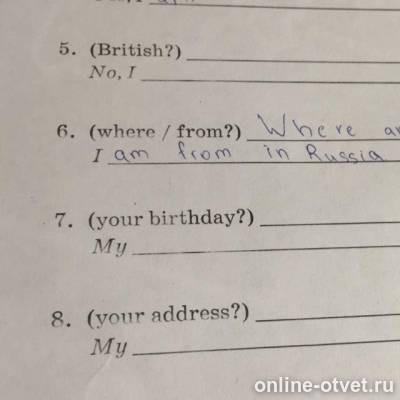 5. (British?)
No, I
6. (where / from?) Where
I am from in Russia
7. (your birthday?)
My
8. (your address?)
My
online-otvet.ru